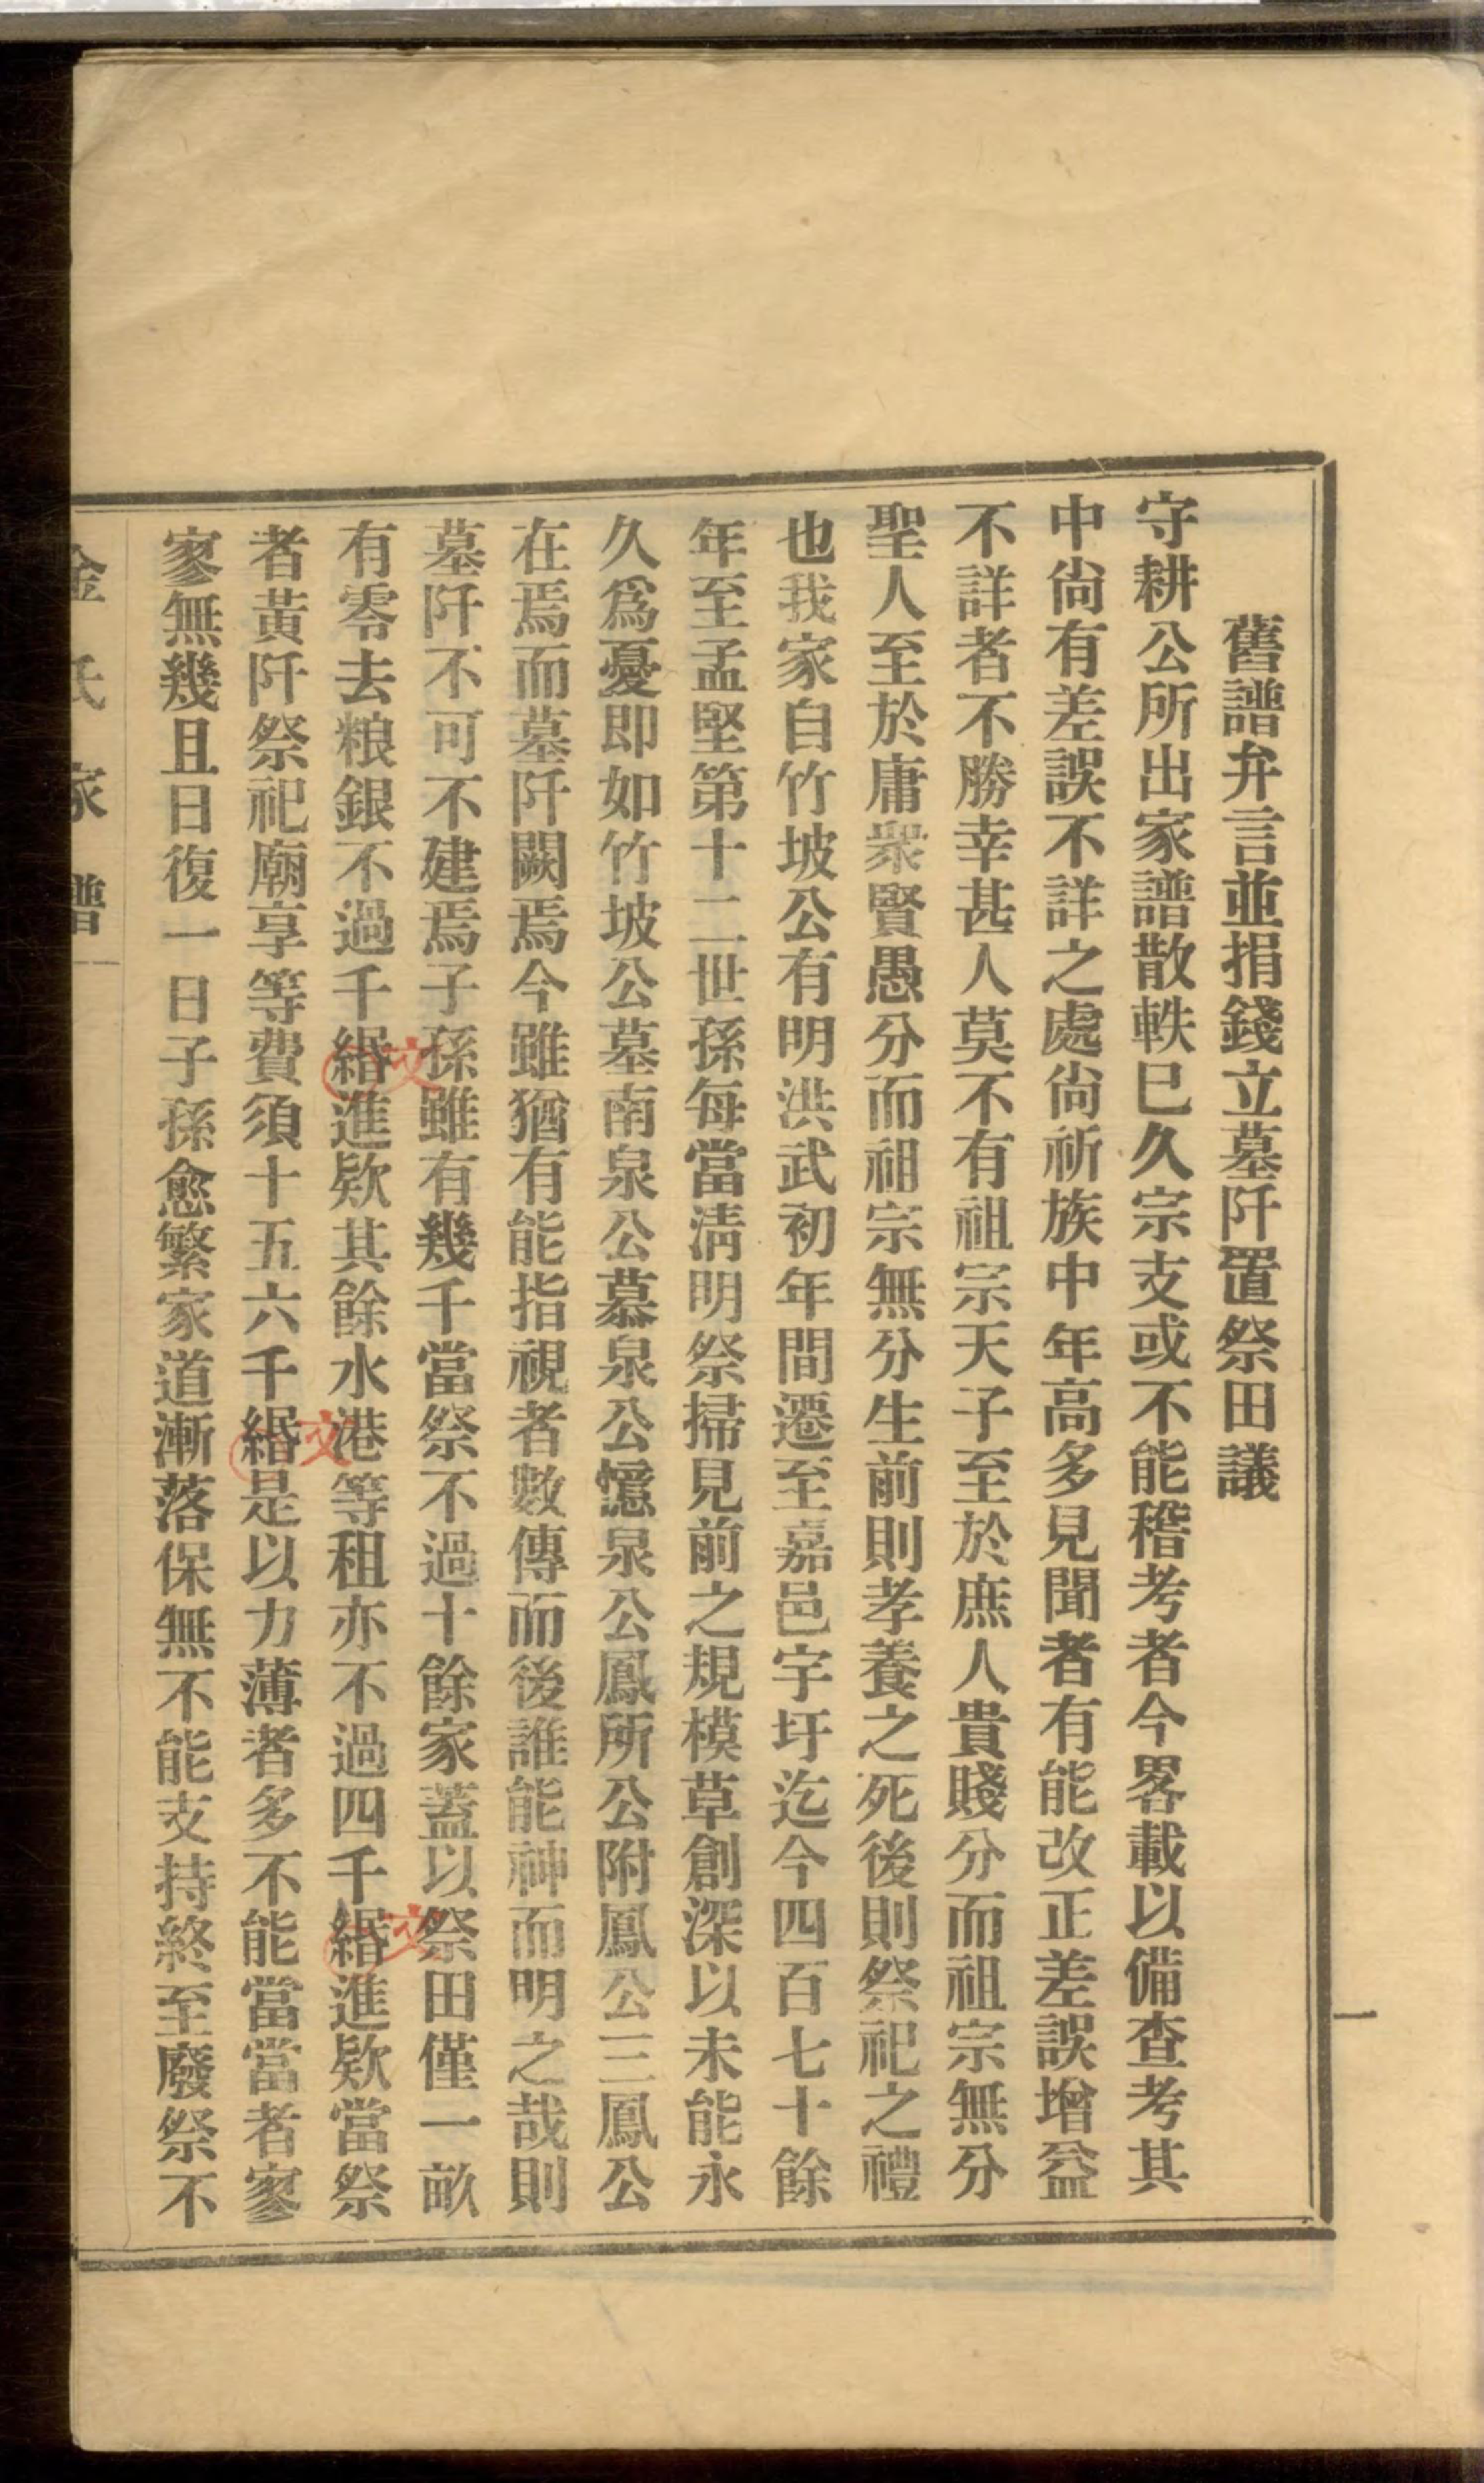 舊譜弁言並捐錢立墓阡置祭田議
守耕公所出家譜散軼巳久宗支或不能稽考者今畧載以備查考其
中尙有差誤不詳之處尙祈族中年高多見聞者有能改正差誤增益
不詳者不勝幸甚人莫不有祖宗天子至於庶人貴賤分而祖宗無分
聖人至於庸衆賢愚分而祖宗無分生前則孝養之死後則祭祀之禮
也我家自竹坡公有明洪武初年間遷至嘉邑宇圩迄今四百七十餘
年至孟堅第十二世孫每當淸明祭掃見前之規模草創深以未能永
久爲憂即如竹坡公墓南泉公慕泉公憶泉公鳳所公附鳳公三鳳公
在焉而墓阡闕焉今雖猶有能指視者數傳而後誰能神而明之哉則
墓阡不可不建焉子孫雖有幾千當祭不過十餘家蓋以祭田僅一畝
有零去粮銀不過千緡進欵其餘水港等租亦不過四千緡進欵當祭
者黃阡祭祀廟享等費須十五六千緡是以力薄者多不能當當者寥
寥無幾且日復一日子孫愈繁家道漸落保無不能支持終至廢祭不
金氏家譜
一
文
文
文